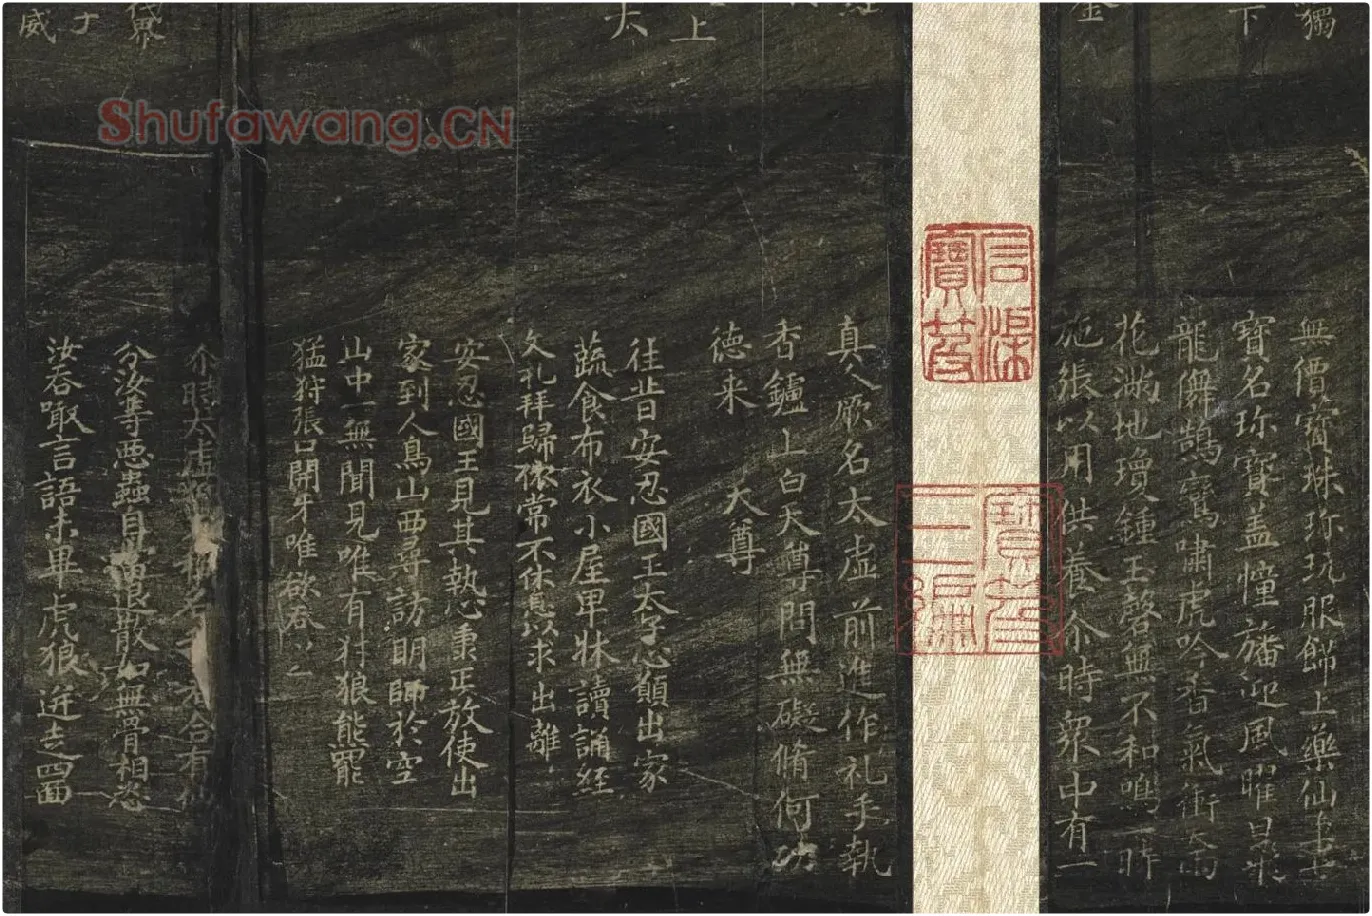 獨
下
上
大
于
威
無價寶珠珎玩服餙上藥仙
寶名珎寶盖幢旛迎風曜日
龍儛鵠鸞嘯虎吟香氣衝天雨
花滿地瓊鍾玉磬無不和鳴一時
施張以用供養尒時衆中有一
石渠寶笈
寶笈三編
真人厥名太虛前進作礼手執
香鑪上白天尊問無礙脩何功
德来
天尊
往昔安忍國王太子心願出家
蔬食布衣小屋卑牀讀誦經
文礼拜歸依常不休息以求出離
安忍國王見其執心秉正放使出
家到人鳥山西尋訪明師於空
山中一無聞見唯有犲狼熊羆
猛狩張口開牙唯欲吞
尒時太虛 合有
分汝等悪蟲自 退散如無骨相恣
汝吞噉言語未畢虎狼迸走四面
Shufawang.CN